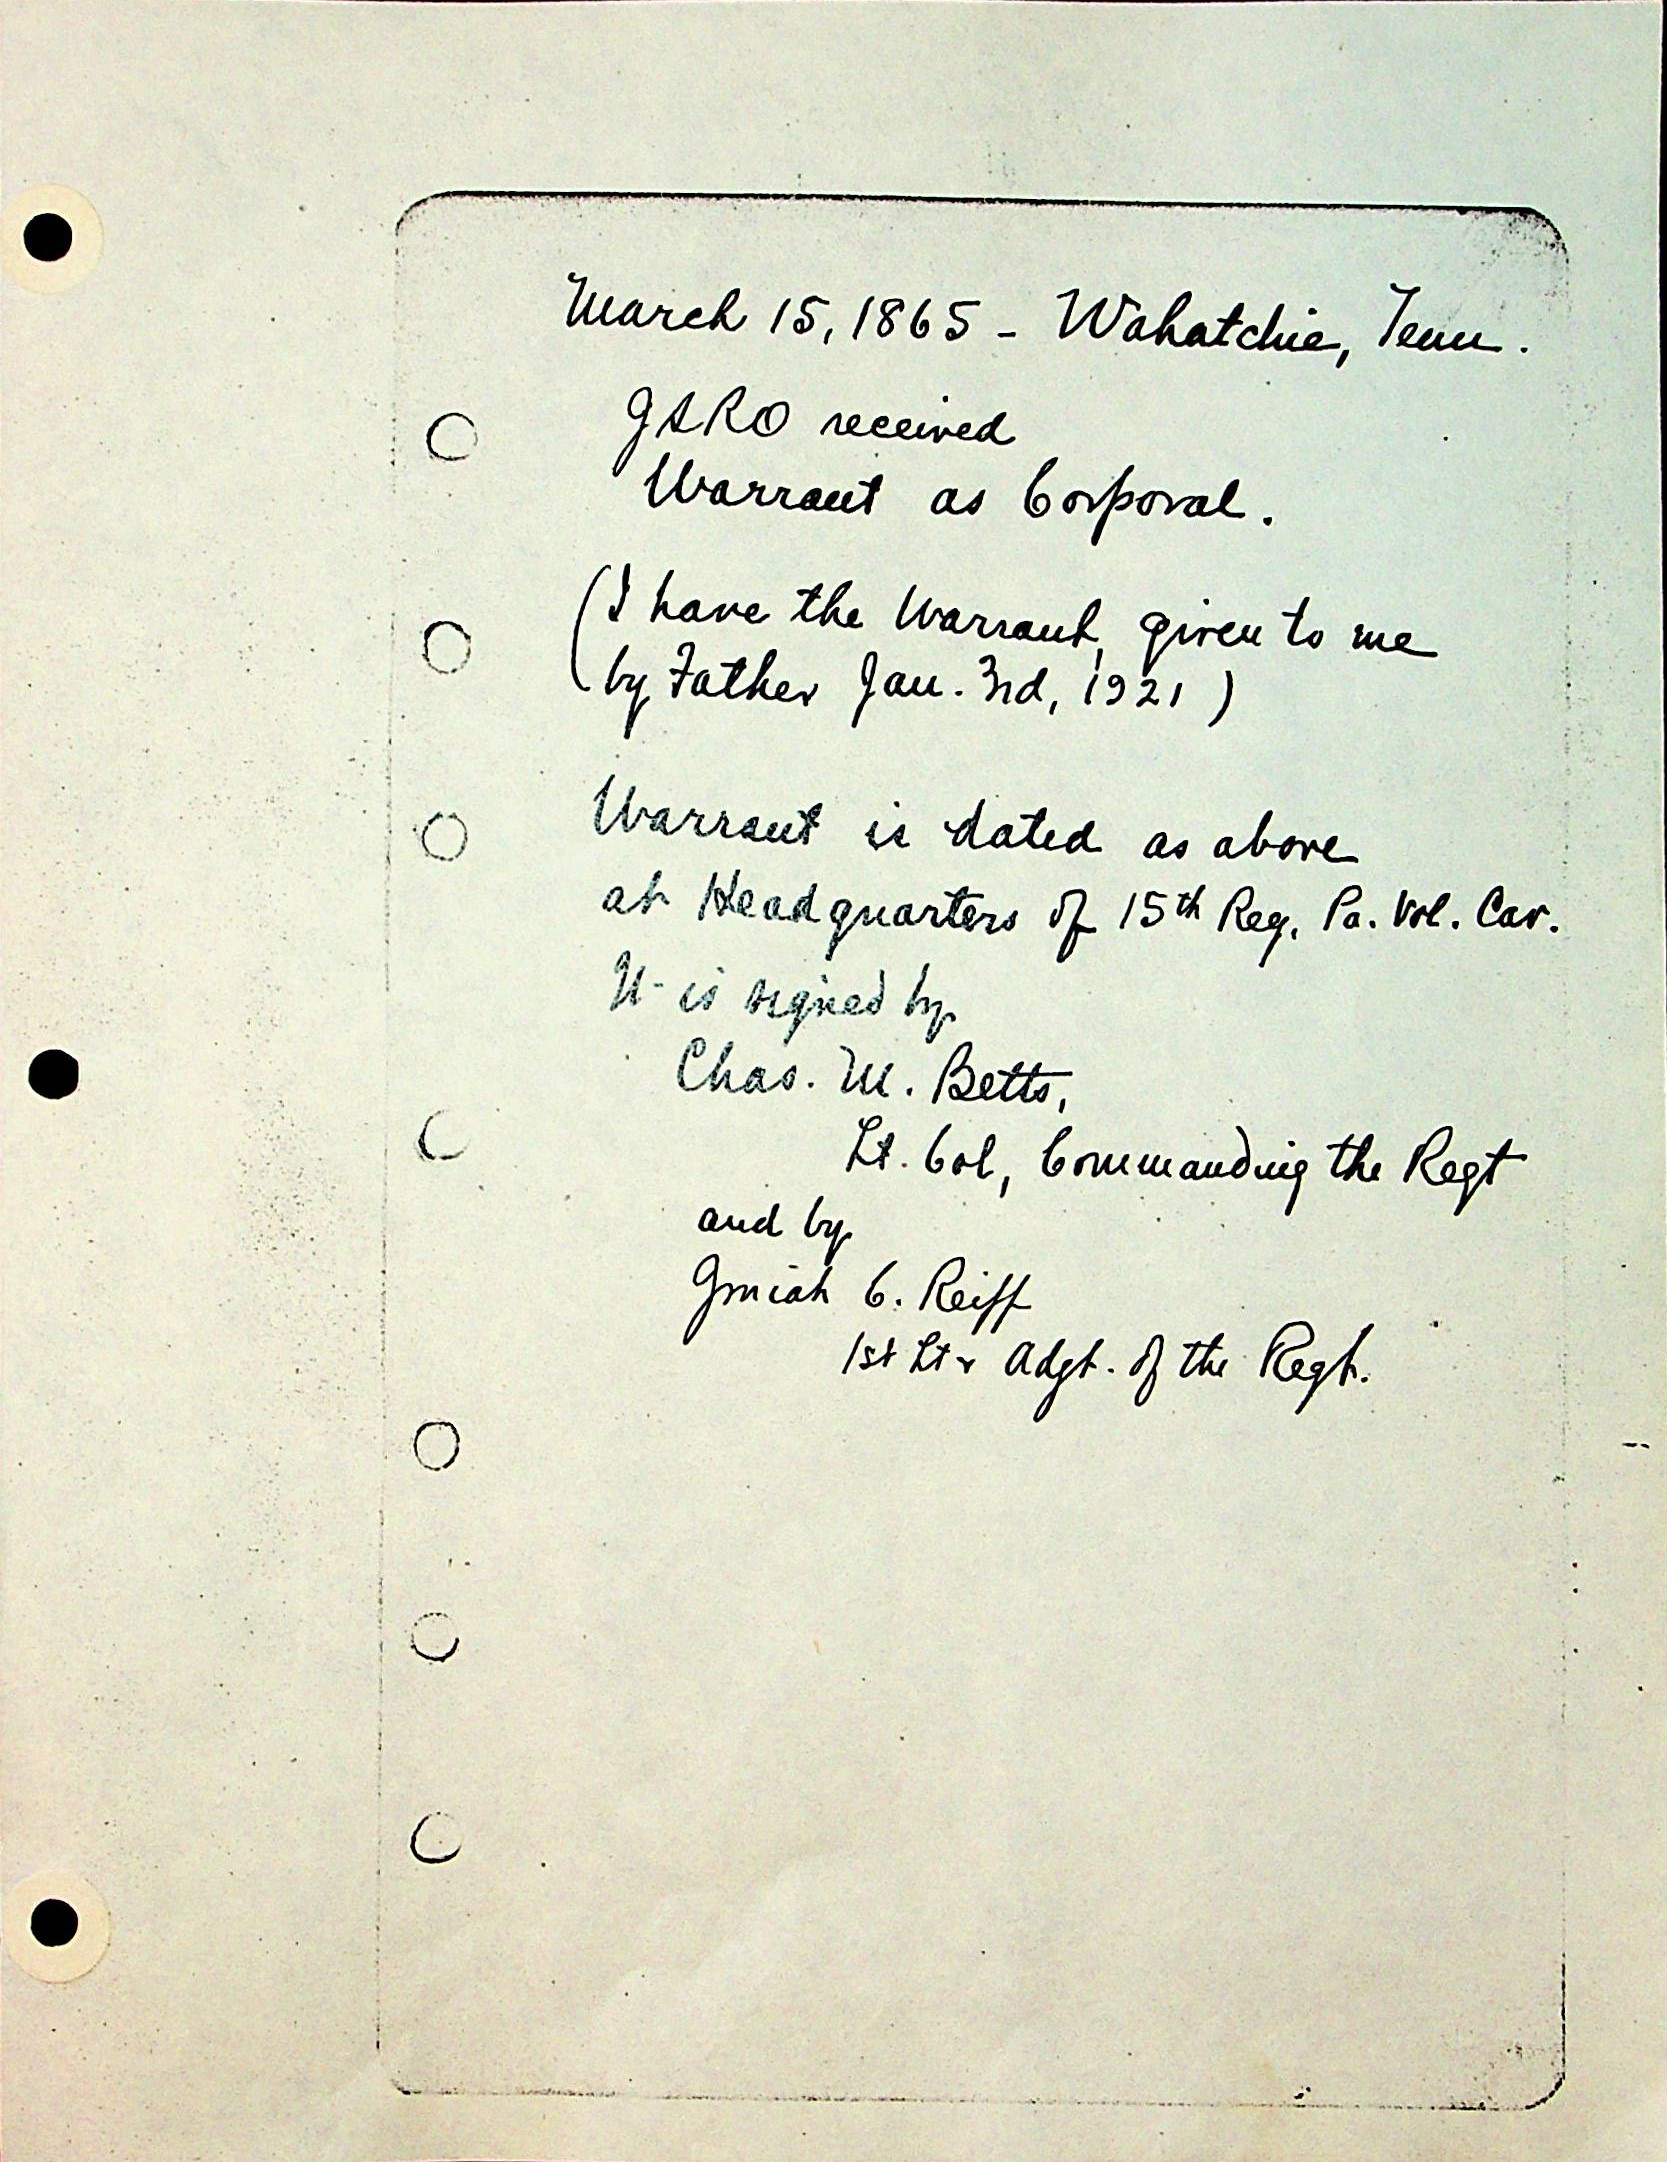 March 15, 1865 - Wahatchie, Tenn.
received
Warrant as Corporal.
(I have the Warrant, given to me
by Father Jan. 3rd, 1921)
Warrant is dated as above
at Headquarters of 15th Reg. Pa. Vol. Cav.
It is signed by
Chas. M. Betts,
Lt. Col, Commanding the Regt
and by
Josiah C. Reiff
1st Lt & Adgt. of the Regt.